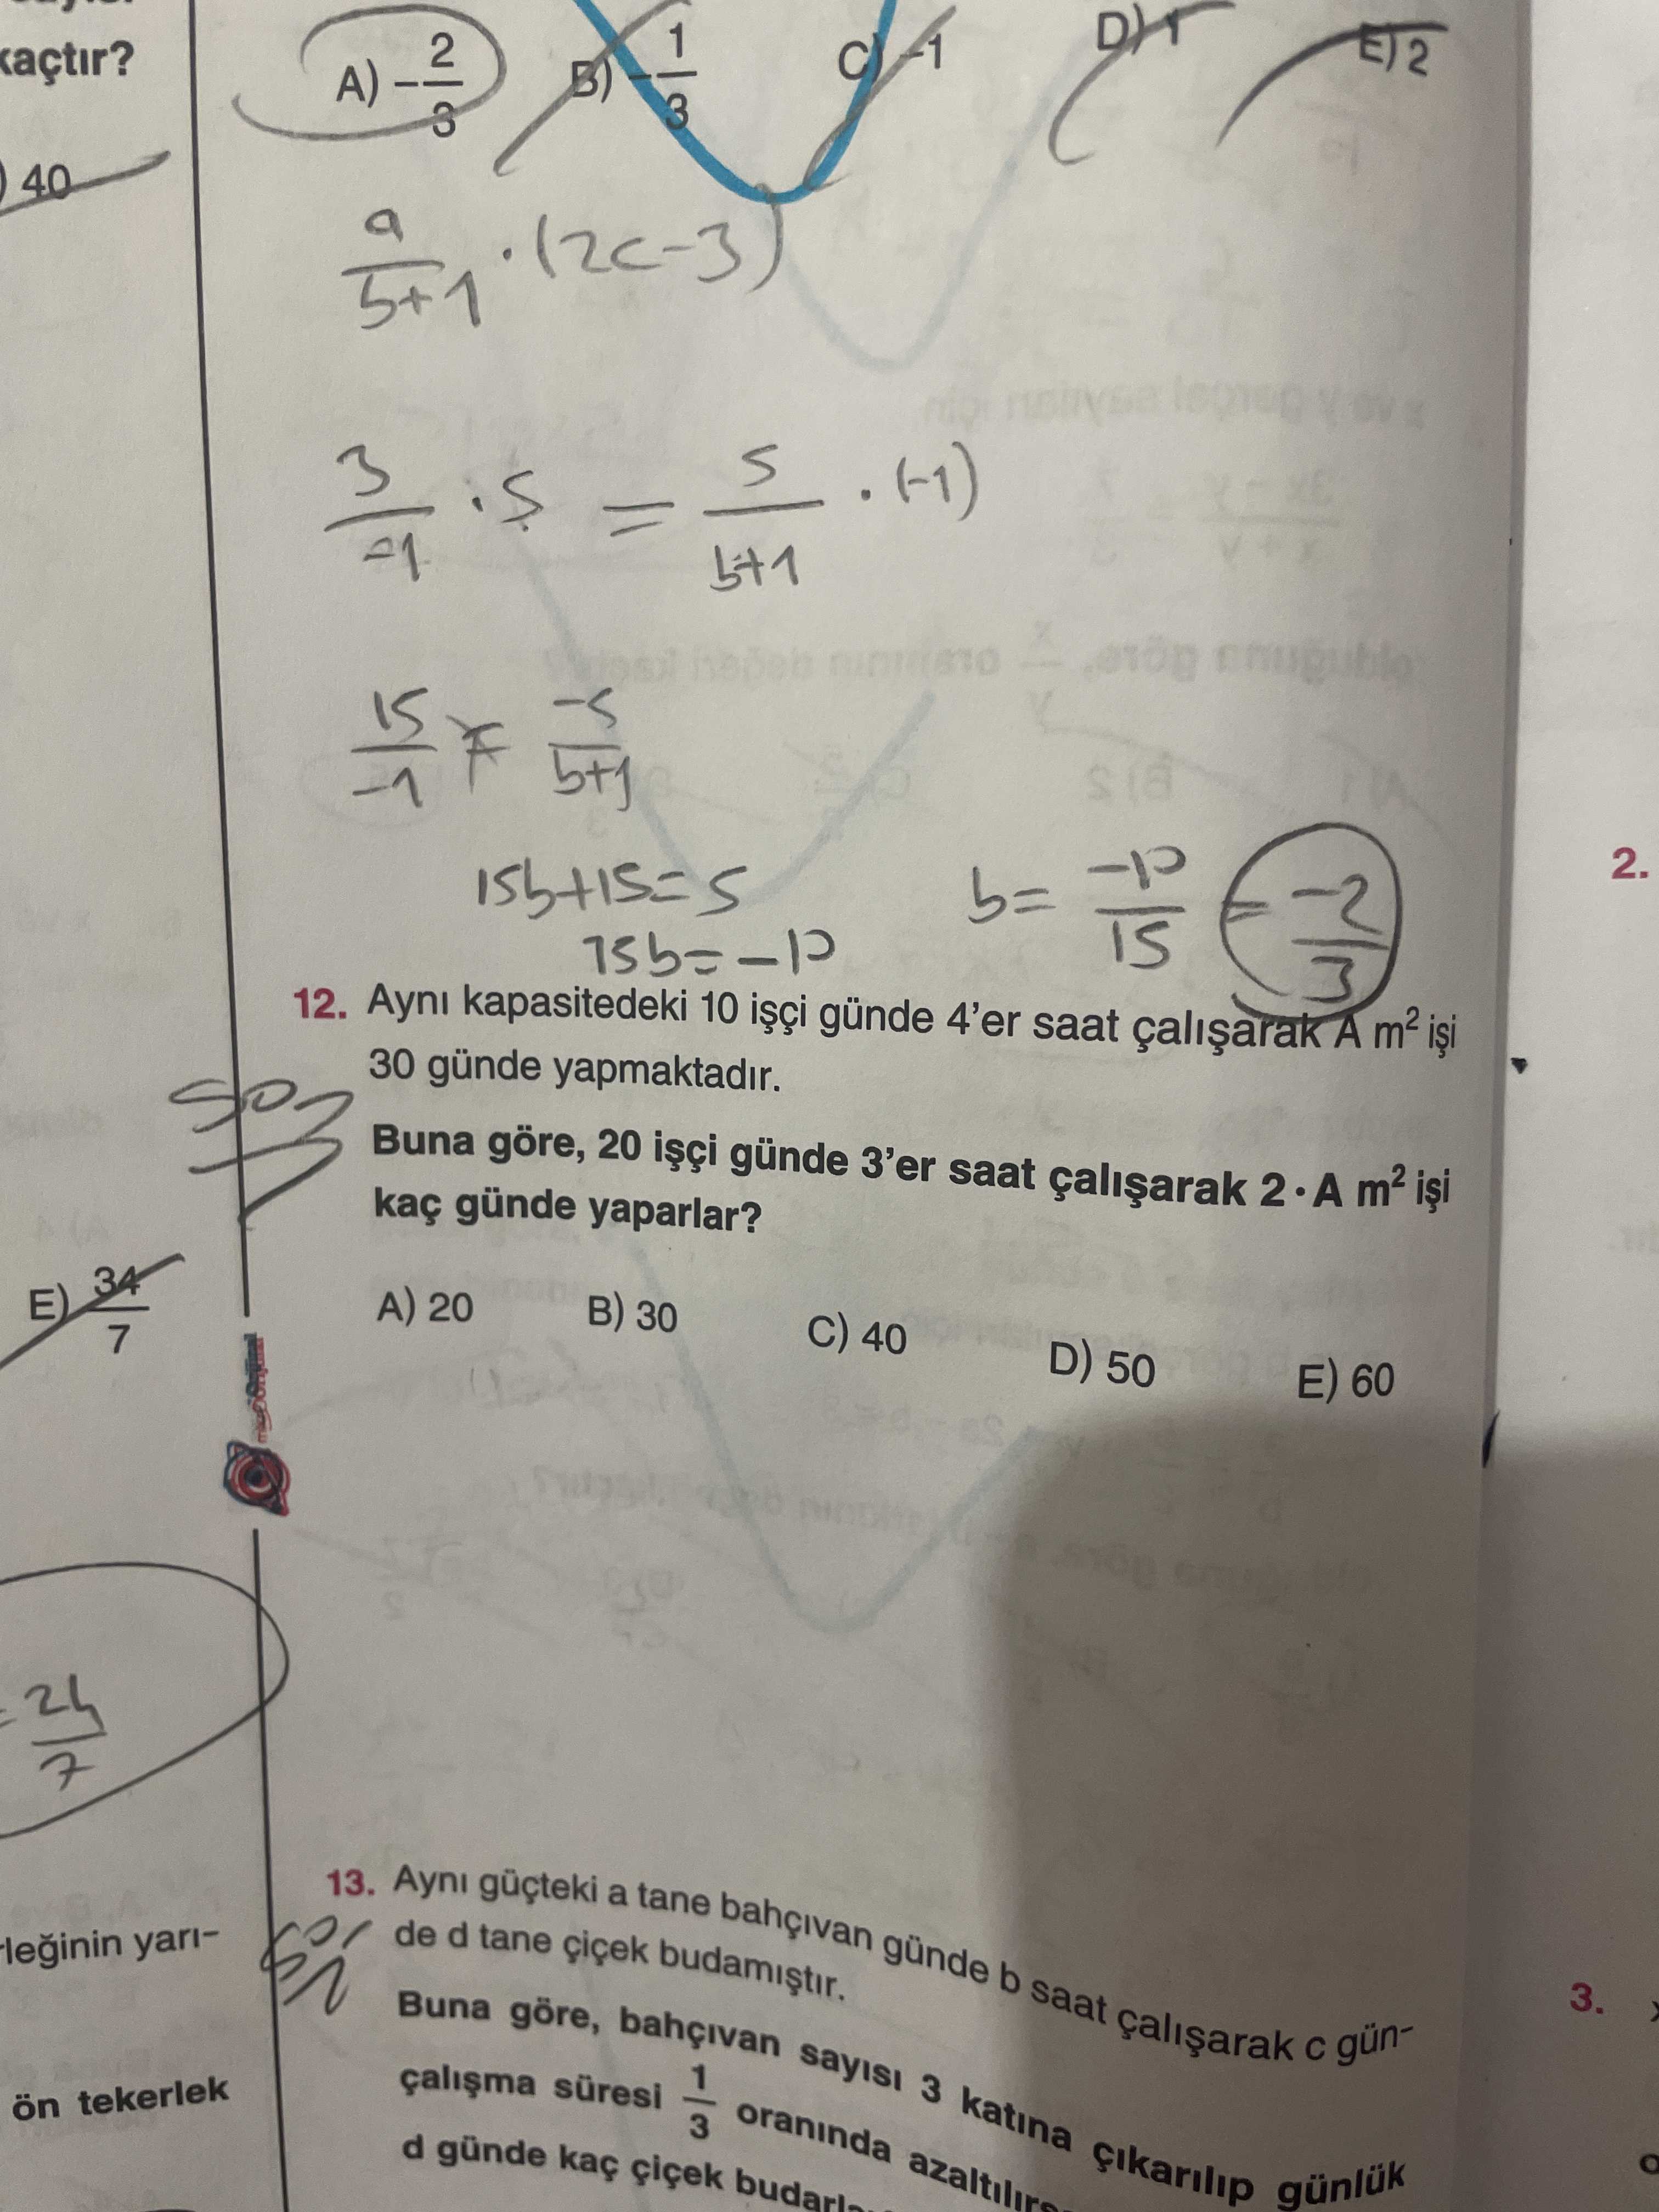 kaçtır?
) 40
E) 34/7
= 24/7
rleğinin yarı-
ön tekerlek
A) -2/3 B) -1/3 C) -1 D) 1 E) 2
a/b+1 · (2c-3)
3/-1 · 5 = 5/b+1 · (-1)
15/-1 = -5/b+1
15b+15=5
15b=-10
b= -10/15 = -2/3
12. Aynı kapasitedeki 10 işçi günde 4'er saat çalışarak A m² işi
30 günde yapmaktadır.
Buna göre, 20 işçi günde 3'er saat çalışarak 2 · A m² işi
kaç günde yaparlar?
A) 20 B) 30 C) 40 D) 50 E) 60
13. Aynı güçteki a tane bahçıvan günde b saat çalışarak c gün-
de d tane çiçek budamıştır.
Buna göre, bahçıvan sayısı 3 katına çıkarılıp günlük
çalışma süresi 1/3 oranında azaltılırsa
d günde kaç çiçek budarlar
2.
3.